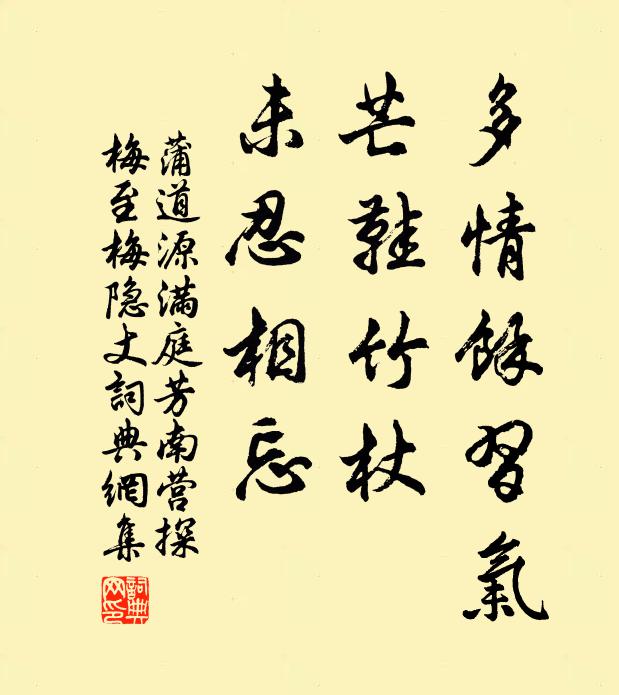 多情餘習氣
芒鞋竹杖
未忍相忘
蒲道源满庭芳南营探
梅至梅隐丈詞典網集
詞典
网印